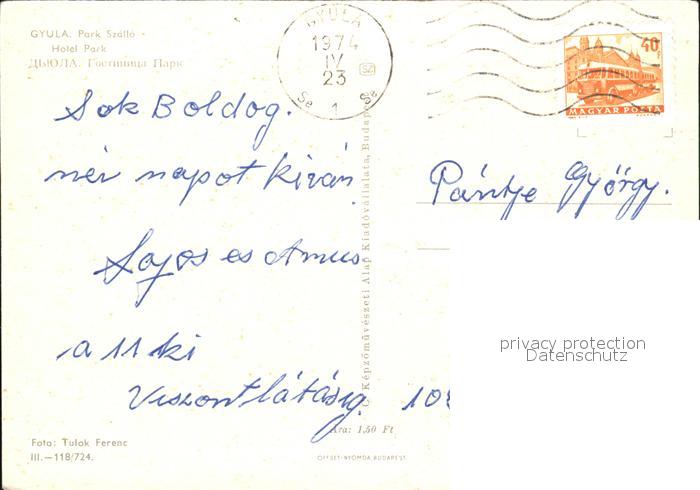 GYULA. Park Szálló -
Hotel Park
ДЬЮЛА. Гостиница Парк
GYULA
1974
IV
23
SZ
1
40 f
MAGYAR POSTA
Sok Boldog.
név napot kíván
Lajos es
a 11 ki
Viszontlátásig.
Pántje György.
privacy protection
Datenschutz
Képzőművészeti Alap Kiadóvállalata, Budapest
Ára: 1,50 Ft
Foto: Tulok Ferenc
III.—118/724.
OFFSET-NYOMDA, BUDAPEST